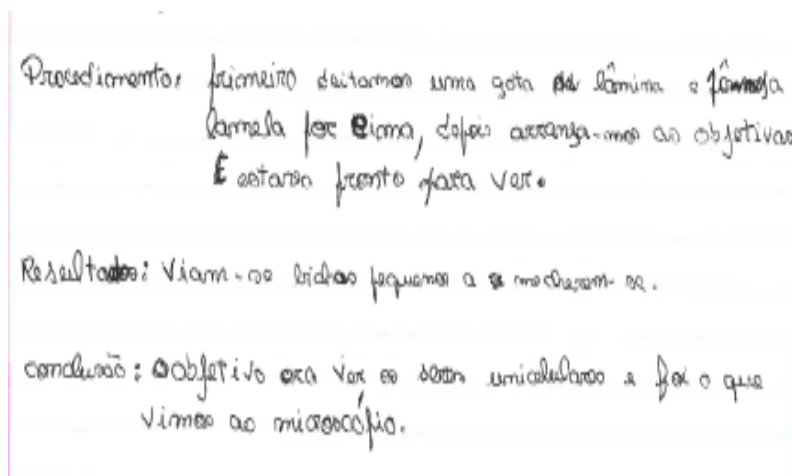 Procedimento: primeiro deitamos uma gota na lâmina e pômos a
lamela por cima, depois arranja-mos as objetivas
E estava pronto para ver.
Resultados: Viam-se bichos pequenos a mecherem-se.
conclusão: O objetivo era ver os seres unicelulares e foi o que
vimos ao microscópio.